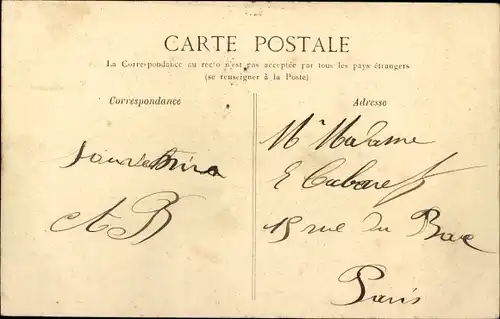 CARTE POSTALE
La Correspondance au recto n'est pas acceptée par tous les pays étrangers
(se renseigner à la Poste)
Correspondance
Adresse
A B
Mr Madame
E Cabaret
15 rue du Bac
Paris